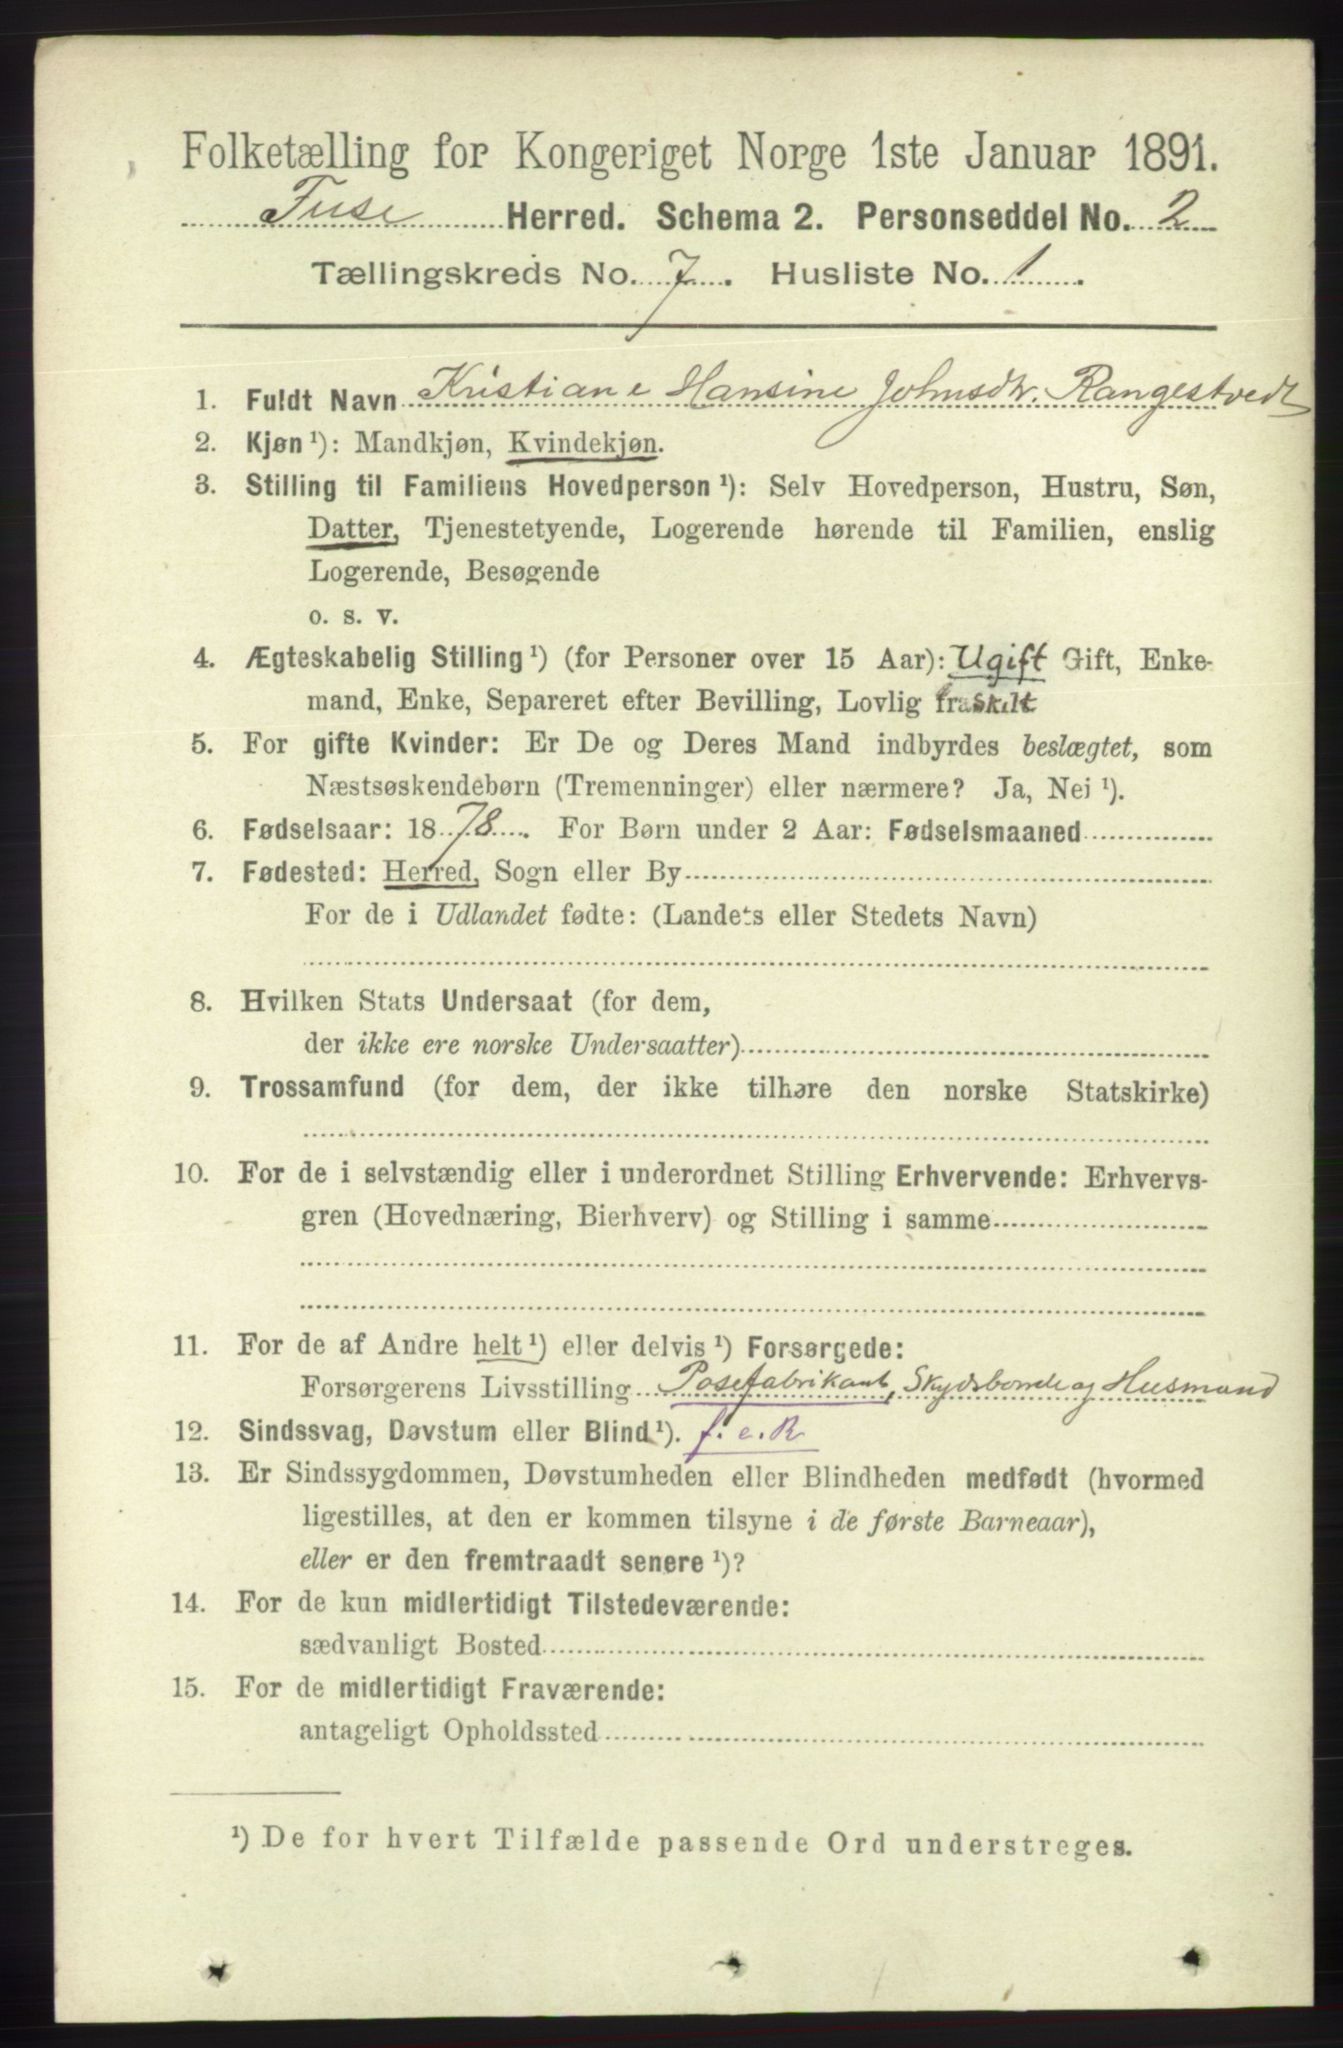 Folketælling for Kongeriget Norge 1ste Januar 1891.
Fuse Herred. Schema 2. Personseddel No. 2
Tællingskreds No. 7. Husliste No. 1.
1. Fuldt Navn Kristiane Hansine Johnsdtr. Rangestvedt
2. Kjøn ¹): Mandkjøn, Kvindekjøn.
3. Stilling til Familiens Hovedperson ¹): Selv Hovedperson, Hustru, Søn,
Datter, Tjenestetyende, Logerende hørende til Familien, enslig
Logerende, Besøgende
o. s. v.
4. Ægteskabelig Stilling ¹) (for Personer over 15 Aar): Ugift Gift, Enke-
mand, Enke, Separeret efter Bevilling, Lovlig fraskilt
5. For gifte Kvinder: Er De og Deres Mand indbyrdes beslægtet, som
Næstsøskendebørn (Tremenninger) eller nærmere? Ja, Nei ¹).
6. Fødselsaar: 1878. For Børn under 2 Aar: Fødselsmaaned
7. Fødested: Herred, Sogn eller By
For de i Udlandet fødte: (Landets eller Stedets Navn)
8. Hvilken Stats Undersaat (for dem,
der ikke ere norske Undersaatter)
9. Trossamfund (for dem, der ikke tilhøre den norske Statskirke)
10. For de i selvstændig eller i underordnet Stilling Erhvervende: Erhvervs-
gren (Hovednæring, Bierhverv) og Stilling i samme
11. For de af Andre helt ¹) eller delvis ¹) Forsørgede:
Forsørgerens Livsstilling Posefabrikant, Skydsbonde og Husmand
12. Sindssvag, Døvstum eller Blind ¹). f. e. R
13. Er Sindssygdommen, Døvstumheden eller Blindheden medfødt (hvormed
ligestilles, at den er kommen tilsyne i de første Barneaar),
eller er den fremtraadt senere ¹)?
14. For de kun midlertidigt Tilstedeværende:
sædvanligt Bosted
15. For de midlertidigt Fraværende:
antageligt Opholdssted
¹) De for hvert Tilfælde passende Ord understreges.